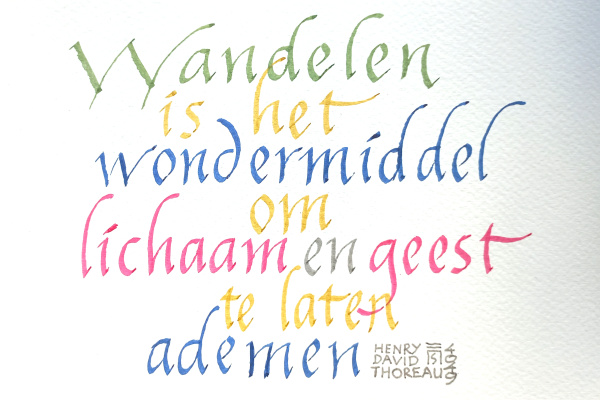 Wandelen
is het
wondermiddel
om
lichaam en geest
te laten
ademen
HENRY
DAVID
THOREAU